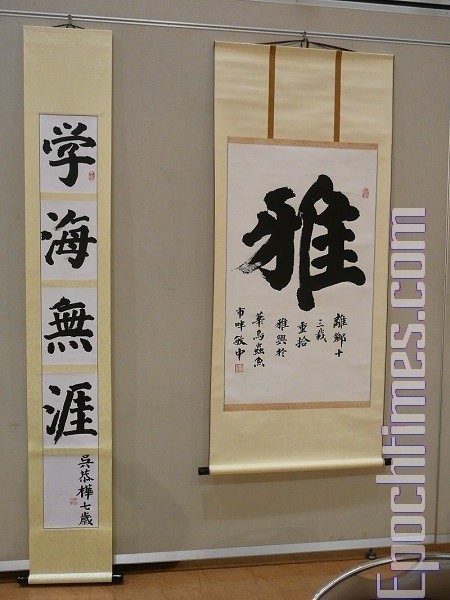 学海無涯
吳恭樺七歲
雅
離鄉十
三載
重拾
雅興於
鳥蟲魚
敏中
Epochtimes.com